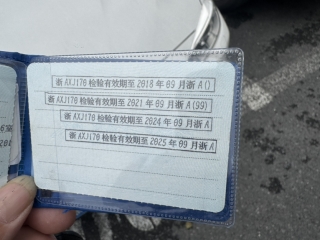 浙 AXJ170 检验有效期至 2018 年 09 月浙 A()
浙 AXJ170 检验有效期至 2021 年 09 月浙 A(99)
浙 AXJ170 检验有效期至 2024 年 09 月浙 A
浙 AXJ170 检验有效期至 2025 年 09 月浙 A